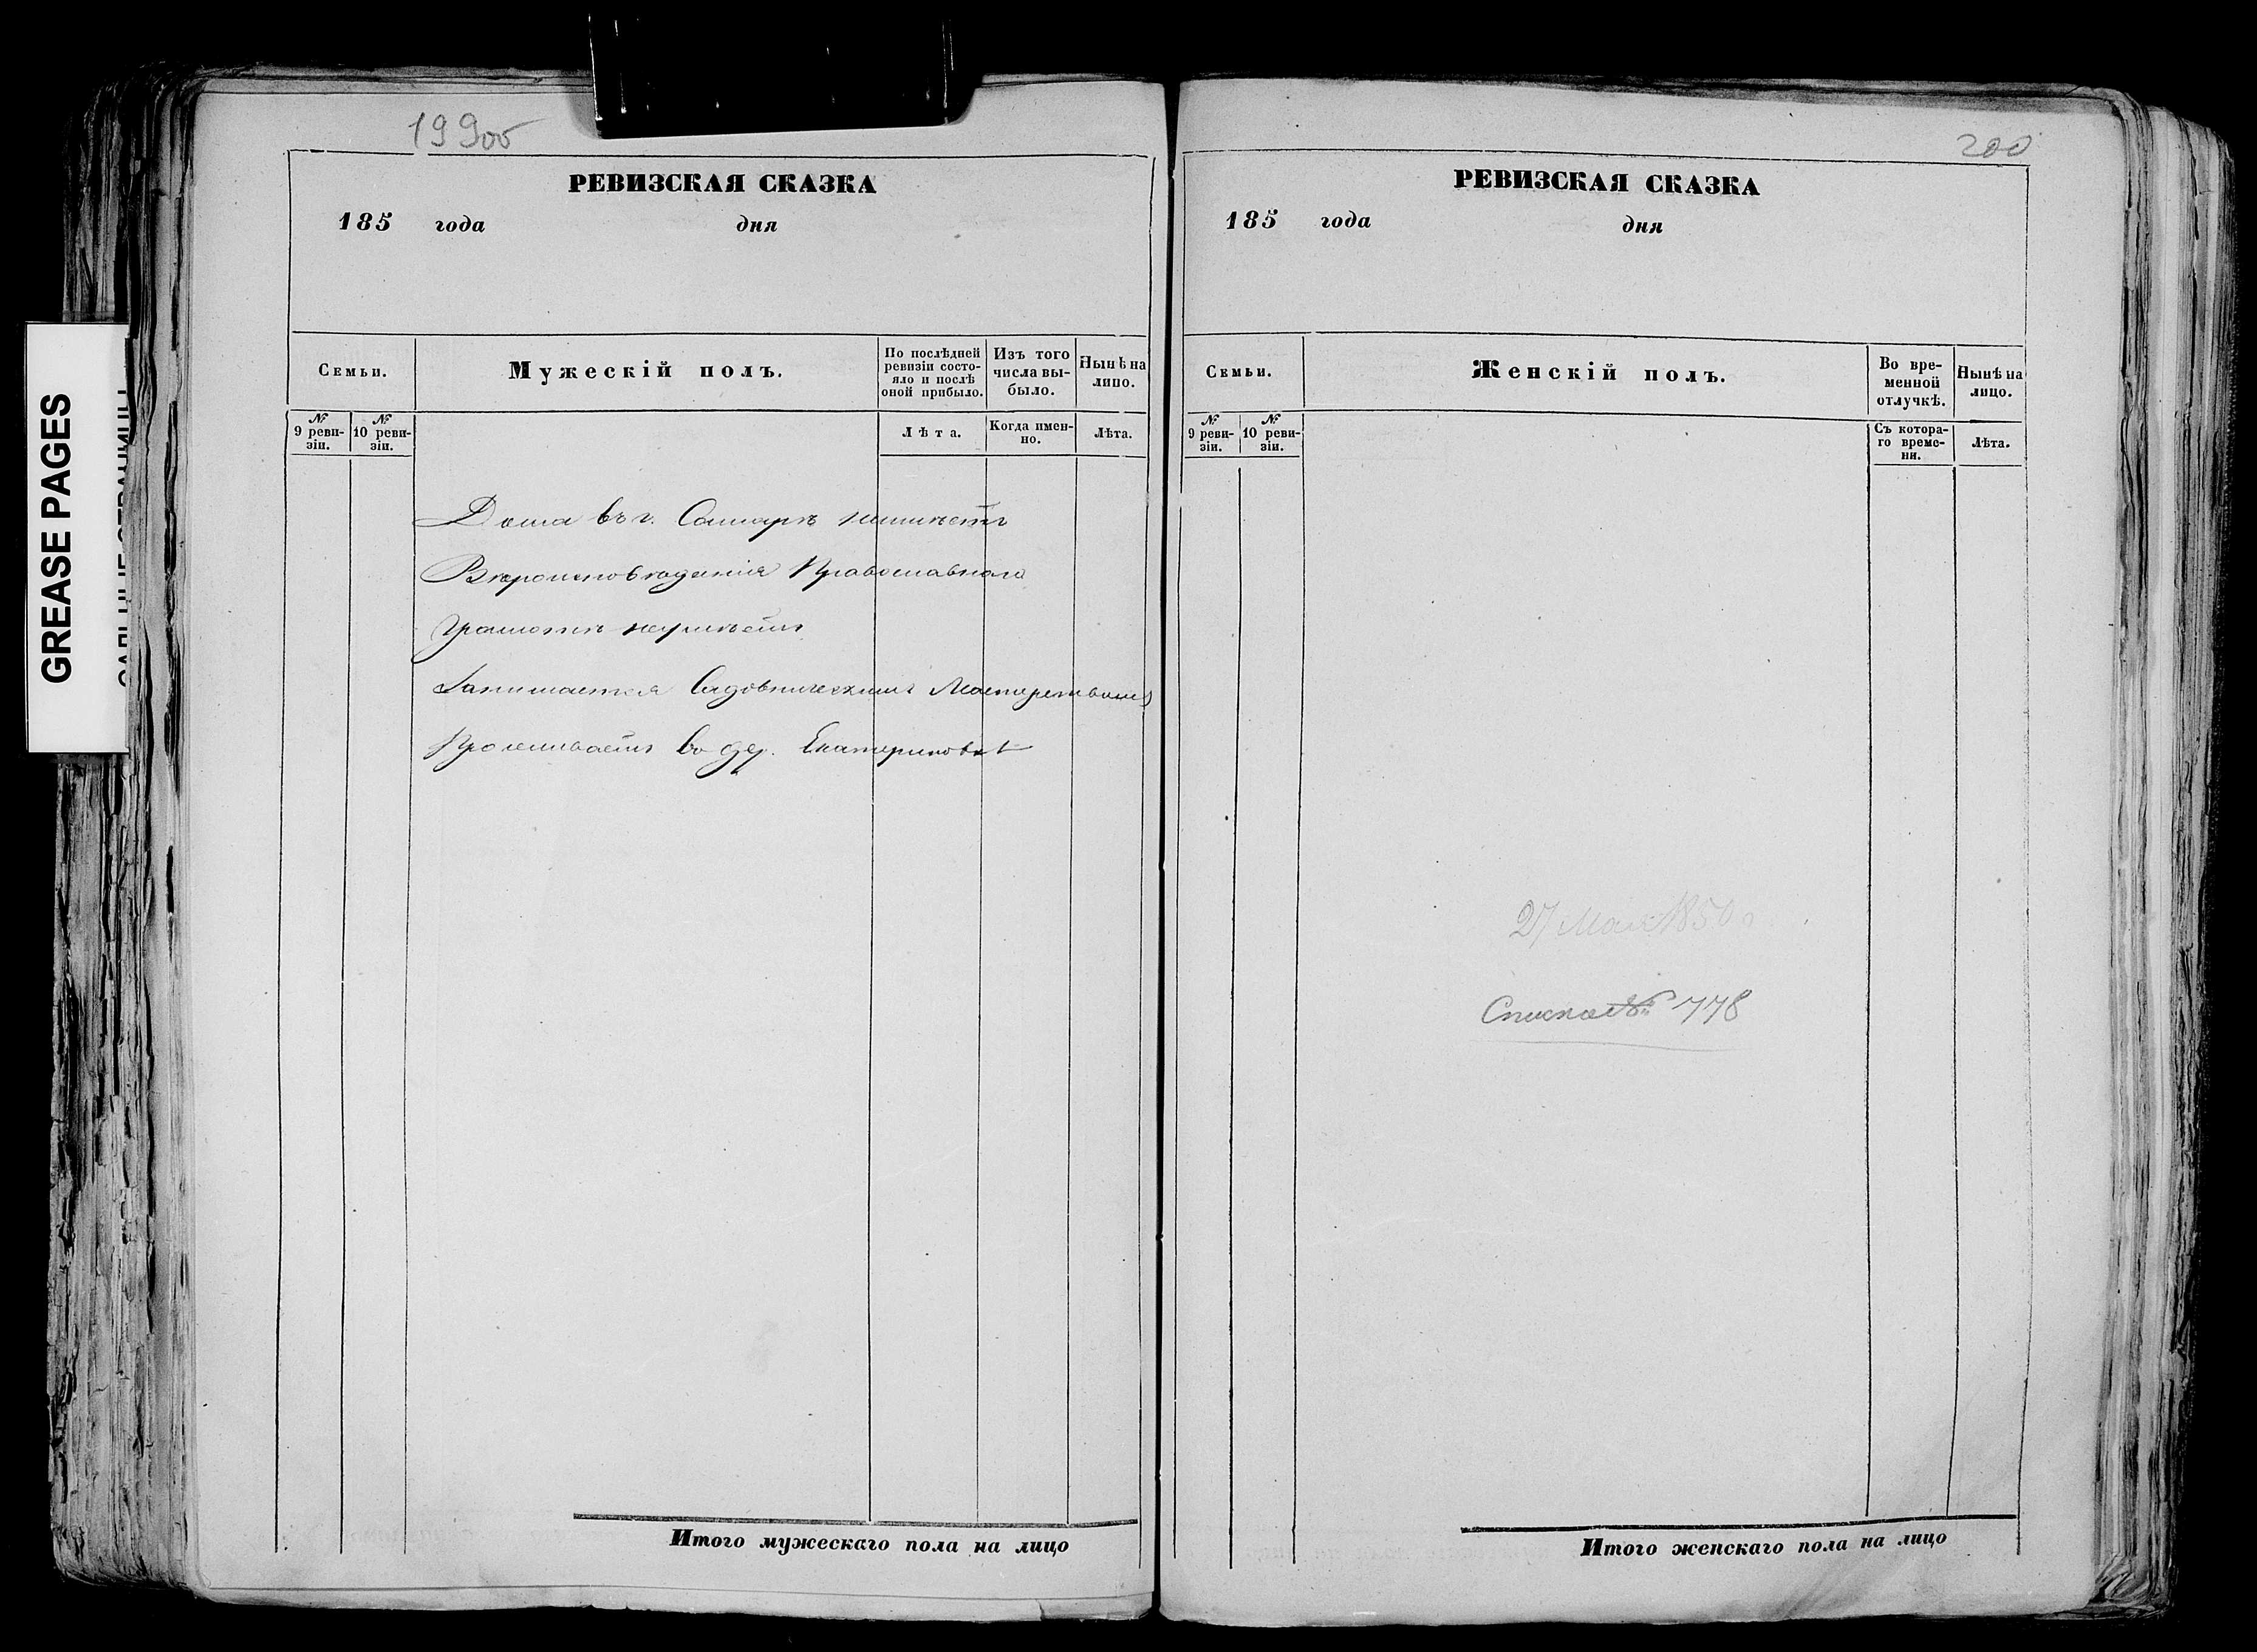 GREASE PAGES
199об
РЕВИЗСКАЯ СКАЗКА
185 года дня
Семьи.
Мужескій полъ.
По послѣдней ревизіи состояло и послѣ оной прибыло.
Изъ того числа выбыло.
Нынѣ на лицо.
№ 9 ревизіи.
№ 10 ревизіи.
Лѣта.
Когда именно.
Лѣта.
Дома въ г. Самарѣ неимѣетъ
Вѣроисповѣданія Православнаго
Грамотѣ неумѣетъ
Занимается Садовническимъ Мастерствомъ
Проживаетъ въ дер. Екатериновкѣ
Итого мужескаго пола на лицо
200
РЕВИЗСКАЯ СКАЗКА
185 года дня
Семьи.
Женскій полъ.
Во временной отлучкѣ.
Нынѣ на лицо.
№ 9 ревизіи.
№ 10 ревизіи.
Съ котораго времени.
Лѣта.
27 Мая 1850 г
Списка № 778
Итого женскаго пола на лицо